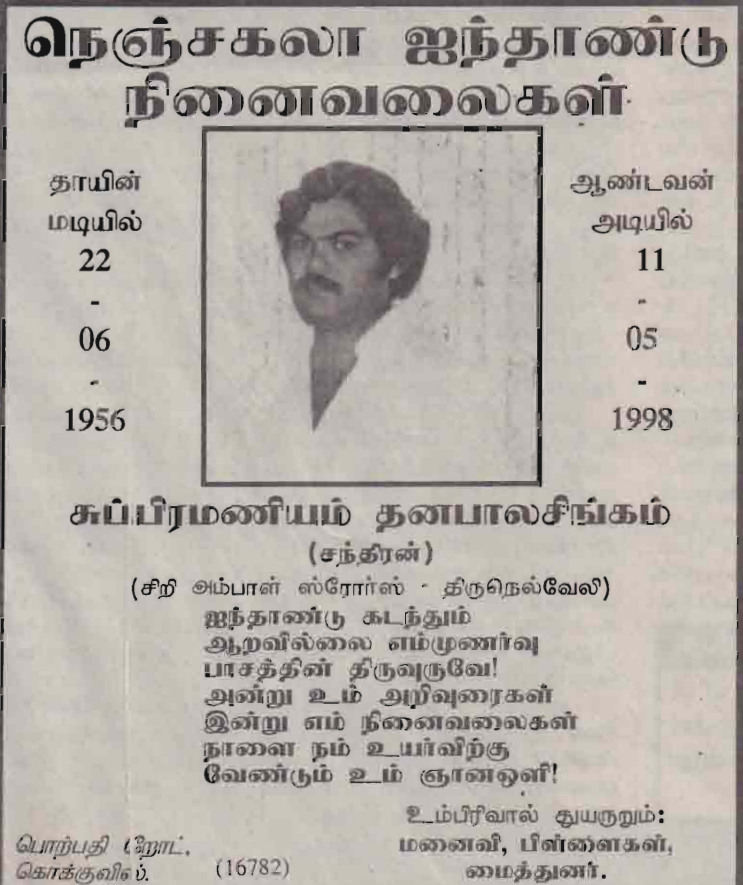 நெஞ்சகலா ஐந்தாண்டு
நினைவலைகள்
தாயின்
மடியில்
22
-
06
-
1956
ஆண்டவன்
அடியில்
11
-
05
-
1998
சுப்பிரமணியம் தனபாலசிங்கம்
(சந்திரன்)
(சிறி அம்பாள் ஸ்ரோர்ஸ் - திருநெல்வேலி)
ஐந்தாண்டு கடந்தும்
ஆறவில்லை எம்முணர்வு
பாசத்தின் திருவுருவே!
அன்று உம் அறிவுரைகள்
இன்று எம் நினைவலைகள்
நாளை நம் உயர்விற்கு
வேண்டும் உம் ஞானஒளி!
உம்பிரிவால் துயருறும்:
மனைவி, பிள்ளைகள்,
மைத்துனர்.
பொற்பதி றோட்,
கொக்குவில்.
(16782)